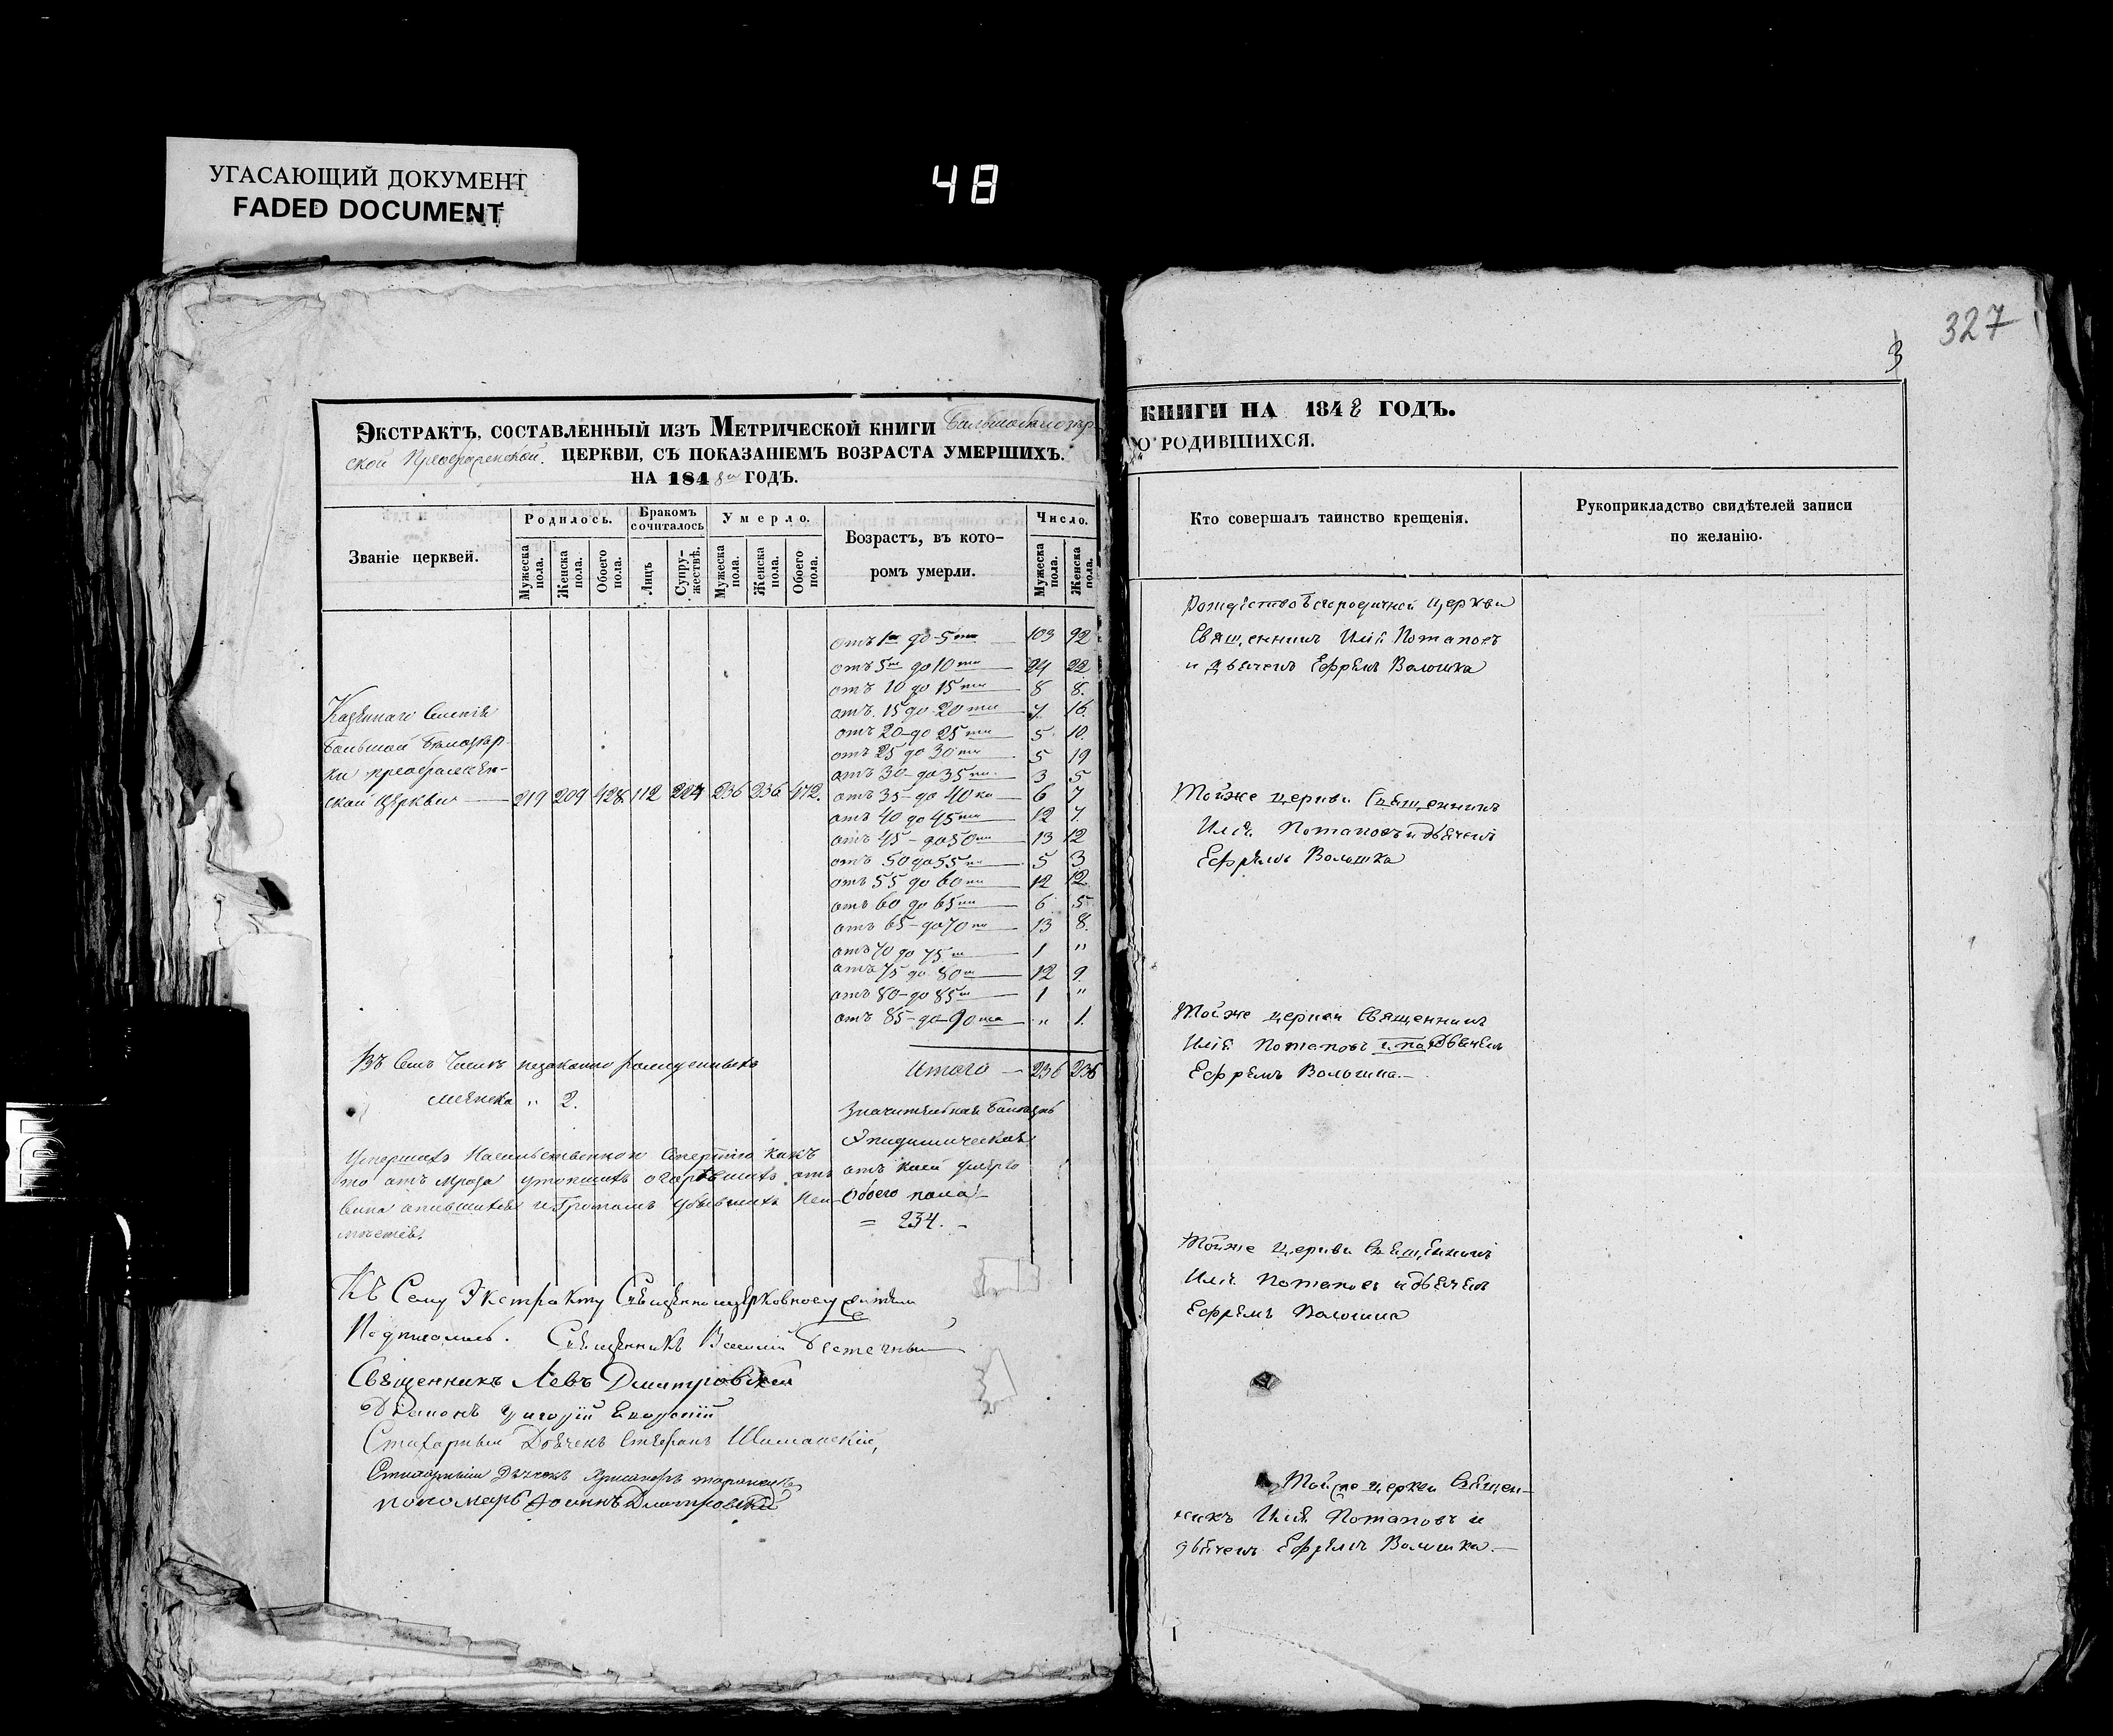 УГАСАЮЩИЙ ДОКУМЕНТ
FADED DOCUMENT
48
327
3
Экстрактъ, составленный изъ Метрической книги Большебѣлозер-
ской Преображенской церкви, съ показаніемъ возраста умершихъ.
на 1848 годъ.
Званіе церквей.
Родилось.
Бракомъ сочиталось
Умерло.
Возрастъ, въ кото-
ромъ умерли.
Число.
Мужеска пола.
Женска пола.
Обоего пола.
Лицъ
Супружествъ.
Мужеска пола.
Женска пола.
Обоего пола.
Мужеска пола.
Женска пола.
отъ 1 до 5 103 92
отъ 5 до 10 24 22
отъ 10 до 15 8 8.
отъ 15 до 20 16
отъ 20 до 25 5 10.
отъ 25 до 30 5 19
отъ 30 до 35 3 5
отъ 35 до 40 6 7
отъ 40 до 45 12 7.
отъ 45 до 50 13 12
отъ 50 до 55 5 3
отъ 55 до 60 12 12
отъ 60 до 65 6 5
отъ 65 до 70 13 8.
отъ 70 до 75 1 "
отъ 75 до 80 12 9.
отъ 80 до 85 1 "
отъ 85 до 90 " 1.
Казеннаго Селенія
Большой Бѣлозер-
ки Преображен-
ской церкви 219 209 428 112 224 236 236 472.
Итого 236 236
Въ семъ числѣ незаконно рожденныхъ
" 2.
Значительная болѣзнь
Эпидимическая
отъ коей умерло
обоего пола
= 234. -
Умершихъ насильственною смертію какъ
то отъ мороза утопшихъ отъ
вина опившихся и громомъ убившихъ неи-
мѣется.
Къ сему Экстракту Священноцерковнослужители
Подписались. Священникъ Василій
Священникъ Левъ Дмитровскій
Діаконъ Григорій
Стихарный Дьячекъ Стефанъ Шиманскій,
Стихарный Дьячекъ
пономарь Іоаннъ Дмитровскій
КНИГИ НА 1848 ГОДЪ.
О РОДИВШИХСЯ.
Кто совершалъ таинство крещенія.
Рукоприкладство свидѣтелей записи
по желанію.
Рождествобогородичной церкви
Священникъ Илія Потаповъ
и дьячекъ Ефремъ Волошка
Тойже церкви Священникъ
Илія Потаповъ и дьячекъ
Ефремъ Волошка
Тойже церкви Священникъ
Илія Потаповъ дьячекъ
Ефремъ Волошка.-
Тойже церкви Священникъ
Илія Потаповъ и дьячекъ
Ефремъ Волошка
Тойже церкви Священ-
никъ Илія Потаповъ и
дьячекъ Ефремъ Волошка.-